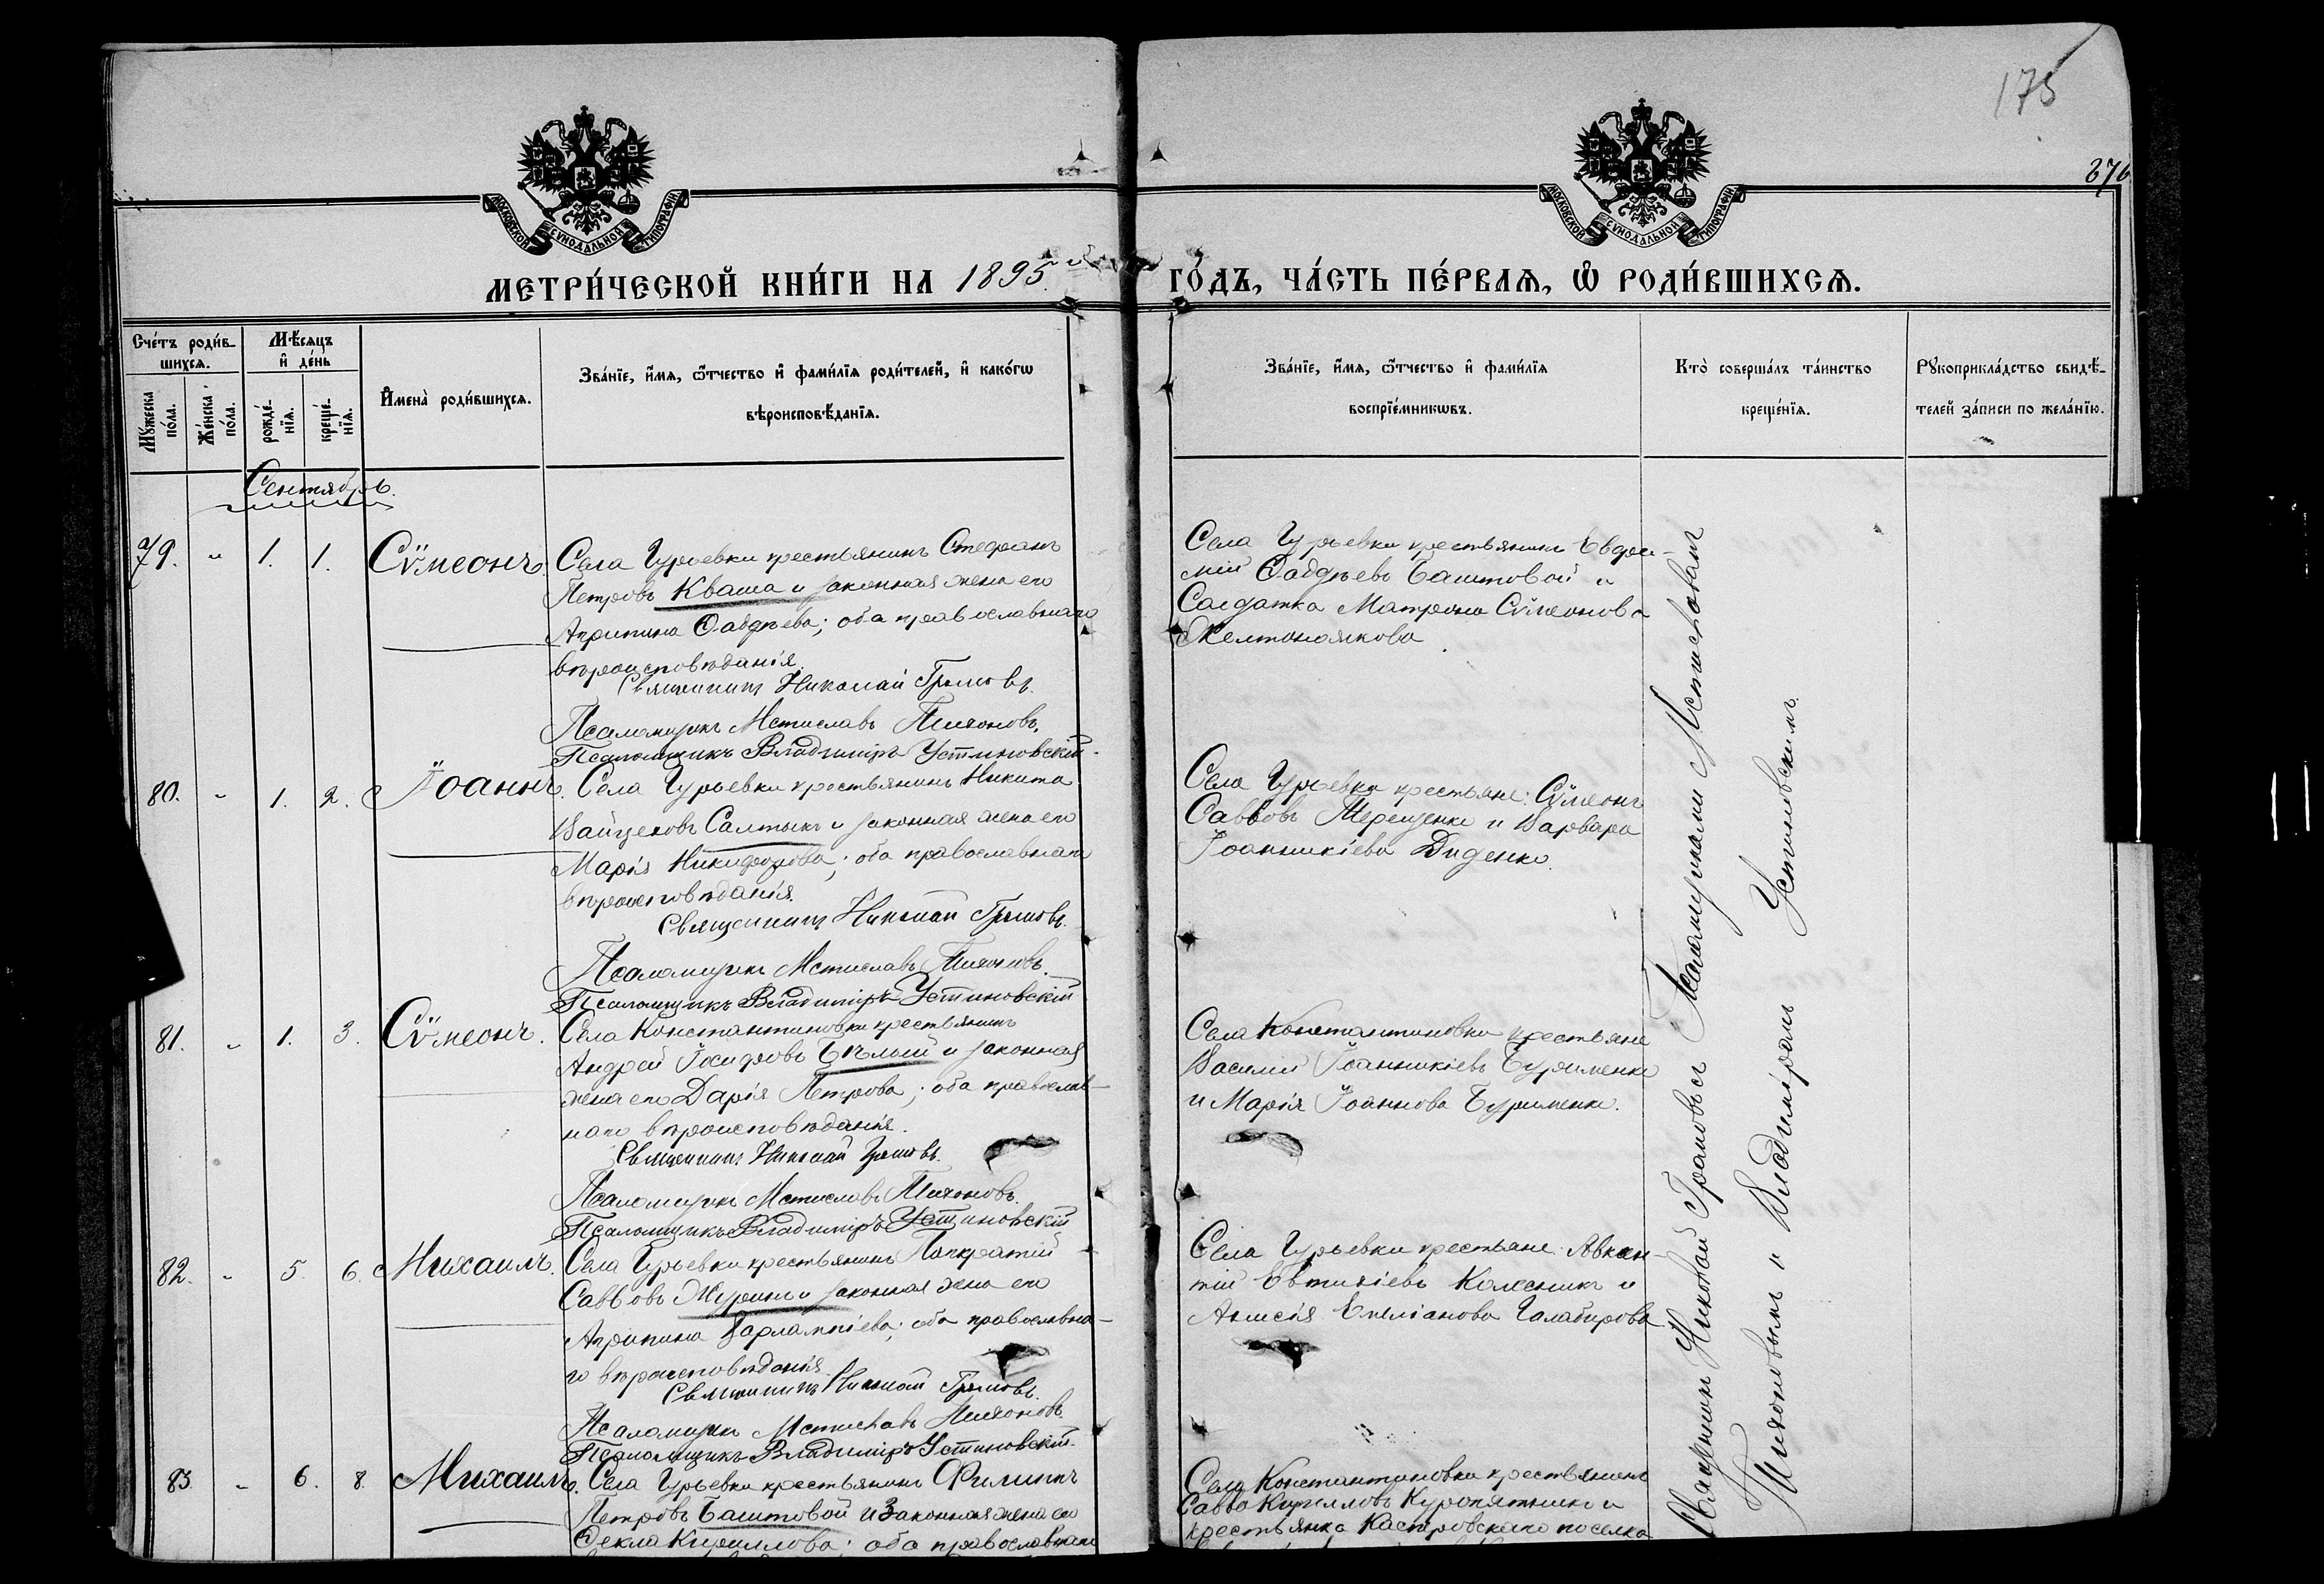 175
376
МОСКОВСКОЙ СѴНОДАЛЬНОЙ ТИПОГРАФІИ
МОСКОВСКОЙ СѴНОДАЛЬНОЙ ТИПОГРАФІИ
МЕТРИ́ЧЕСКОЙ КНИ́ГИ НА 1895 ГО́ДЪ, ЧА́СТЬ ПЕ́РВАѦ, Ѡ҆ РОДИ́ВШИХСѦ.
Сче́тъ роди́в-
шихсѧ.
Мѣ́сѧцъ
и҆ де́нь
Мꙋ́жеска
по́ла.
Же́нска
по́ла.
рожде́-
нїѧ.
креще́-
нїѧ.
И҆мена̀ роди́вшихсѧ.
Зва́нїе, и҆́мѧ, ѻ҆́тчество и҆ фами́лїѧ роди́телей, и҆ како́гѡ
вѣроисповѣ́данїѧ.
Зва́нїе, и҆́мѧ, ѻ҆́тчество и҆ фами́лїѧ
воспрїе́мникѡвъ.
Кто̀ соверша́лъ та́инство
креще́нїѧ.
Рꙋкоприкла́дство свидѣ́-
телей за́писи по жела́нїю.
Сентябрь.
79. " 1. 1. Сѵмеонъ.
Села Гурьевки крестьянинъ Стефанъ
Петровъ Кваша и законная жена его
Агрипина Фаддѣева; оба православнаго
вѣроисповѣданія.
Священникъ Николай Громовъ.
Псаломщикъ Мстиславъ Тихоновъ.
Псаломщикъ Владиміръ Устиновскій.
Села Гурьевки крестьянинъ Евфи-
мій Фаддѣевъ Баштовой и
Солдатка Матрона Сѵмеонова
Желтоножкова.
80. " 1. 2. Іоаннъ.
Села Гурьевки крестьянинъ Никита
Салтыкъ и законная жена его
Марія Никифорова; оба православнаго
вѣроисповѣданія.
Священникъ Николай Громовъ.
Псаломщикъ Мстиславъ Тихоновъ.
Псаломщикъ Владиміръ Устиновскій
Села Гурьевки крестьяне: Сѵмеонъ
Савовъ Терещенко и Варвара
Іоанникіева Диденко.
81. " 1. 3. Сѵмеонъ.
Села Константиновки крестьянинъ
Андрей Іосифовъ Бѣлый и законная
жена его Дарія Петрова; оба православ-
наго вѣроисповѣданія.
Священникъ Николай Громовъ.
Псаломщикъ Мстиславъ Тихоновъ.
Псаломщикъ Владиміръ Устиновскій
Села Константиновки крестьяне
Василій Іоанникіевъ Буряменко
и Марія Іоаннова Буряменко.
82. " 5. 6. Михаилъ.
Села Гурьевки крестьянинъ Панкратій
Саввовъ и законная жена его
Агрипина Харлампіева; оба православна-
го вѣроисповѣданія.
Священникъ Николай Громовъ.
Псаломщикъ Мстиславъ Тихоновъ.
Псаломщикъ Владиміръ Устиновскій.
Села Гурьевки крестьяне: Авксен-
тій Евтихіевъ Колесникъ и
Анисія Емеліанова
83. " 6. 8. Михаилъ.
Села Гурьевки крестьянинъ Филиппъ
Петровъ Баштовой и законная жена его
Фекла Кириллова; оба православнаго
Села Константиновки крестьянинъ
Савва Кирилловъ Куропятникъ и
крестьянка поселка
Священникъ Николай Громовъ съ Псаломщиками Мстиславомъ
Тихоновымъ и Владиміромъ Устиновскимъ.